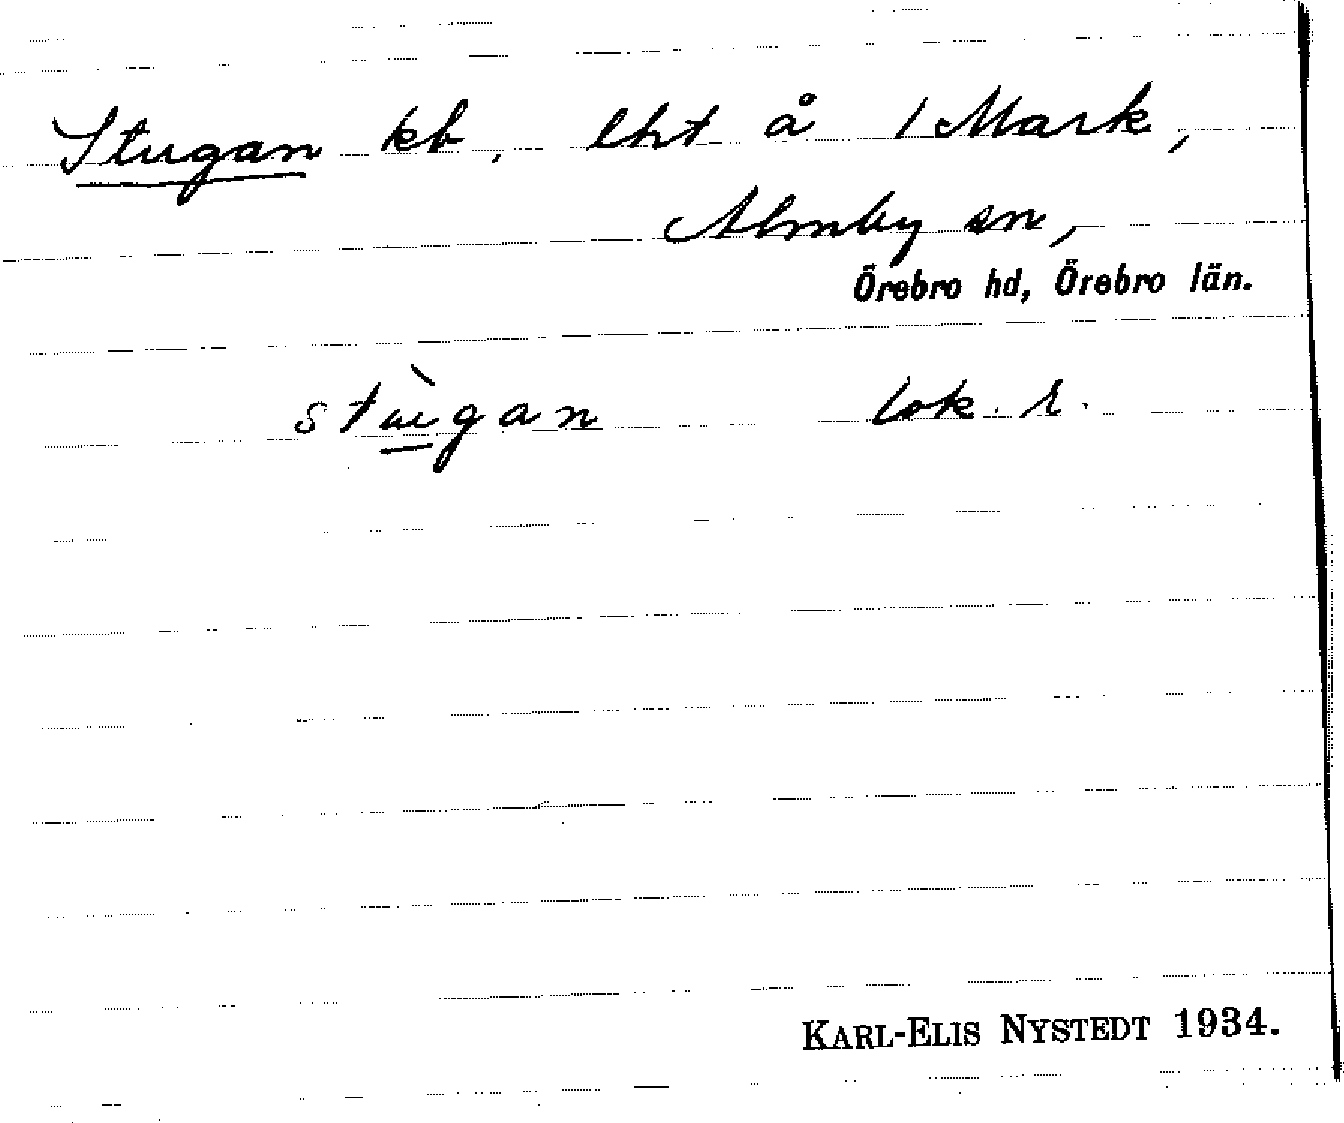 Stugan kb, lht å 1 Mark,
Almby sn,
Örebro hd, Örebro län.
stù̲gan lok. r.
KARL-ELIS NYSTEDT 1934.